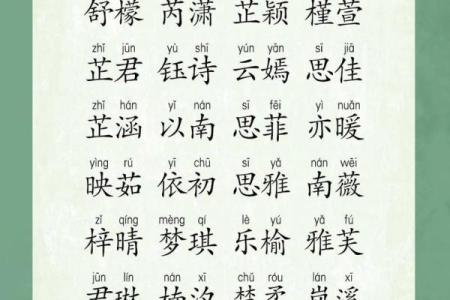 舒檬 芮潇 芷颖 槿萱
zhǐ jūn yù shī yún yān sī jiā
芷君 钰诗 云嫣 思佳
zhǐ hán yǐ nán sī fēi yì nuǎn
芷涵 以南 思菲 亦暖
yìng rú yī chū sī yǎ nán wēi
映茹 依初 思雅 南薇
zǐ qíng mèng qí lè yú yǎ fú
梓晴 梦琪 乐榆 雅芙
jūn lín nán xī chǔ róu lán xī
君琳 楠汐 楚柔 岚溪